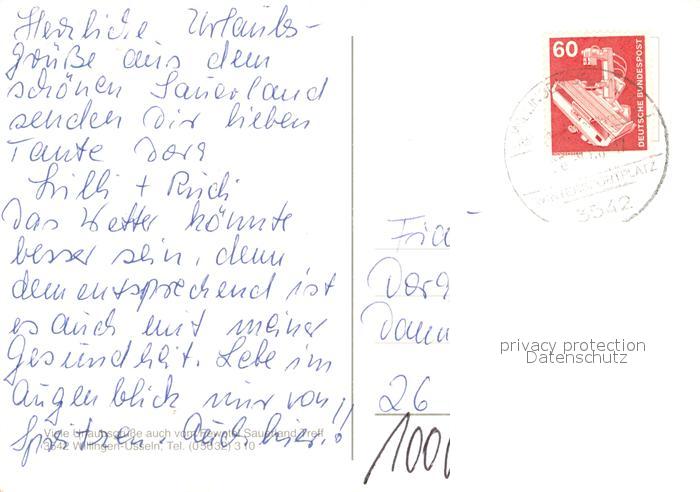 Herzliche Urlaubs-
grüße aus dem
schönen Sauerland
senden Dir lieben
Tante Dora
Lilli + Rudi
Das Wetter könnte
besser sein, denn
dementsprechend ist
es auch mit meiner
Gesundheit. Lebe im
Augenblick nur von
Spritzen. Auch hier!!
Viele Urlaubsgrüße auch vom Sauerland Treff
3542 Willingen-Usseln, Tel. (05632) 310
60
DEUTSCHE BUNDESPOST
3542
Dora
26
privacy protection
Datenschutz